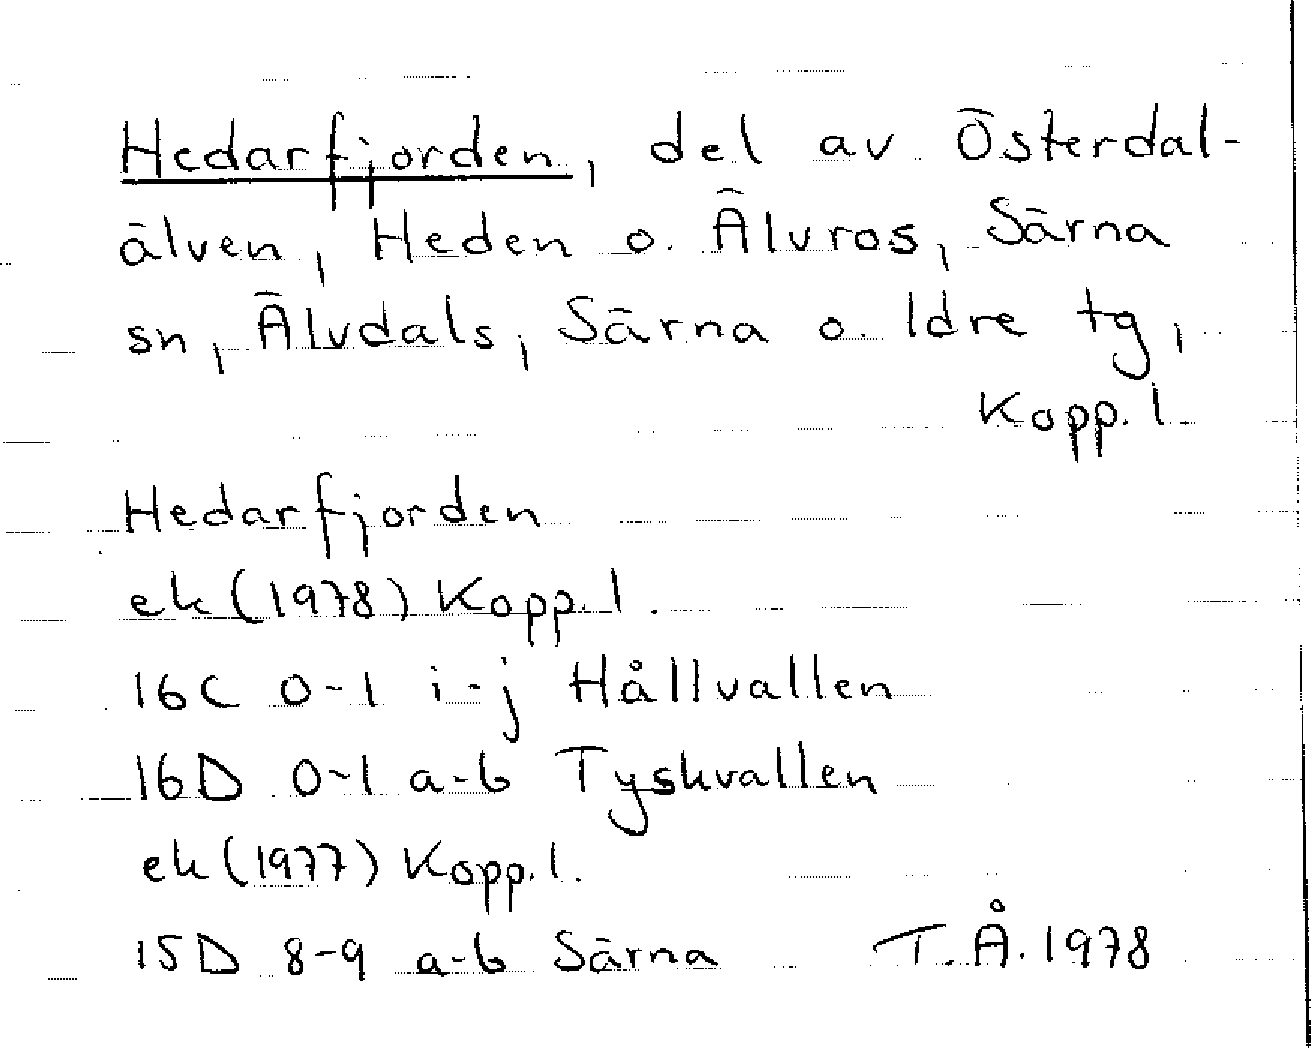 Hedarfjorden, del av Österdal-
älven, Heden o. Älvros, Särna
sn, Älvdals, Särna o. Idre tg,
Kopp. l
Hedarfjorden
ek (1978) Kopp. l.
16C 0-1 i-j Hållvallen
16D 0-1 a-b Tyskvallen
ek (1977) Kopp. l.
15D 8-9 a-b Särna T.Å. 1978